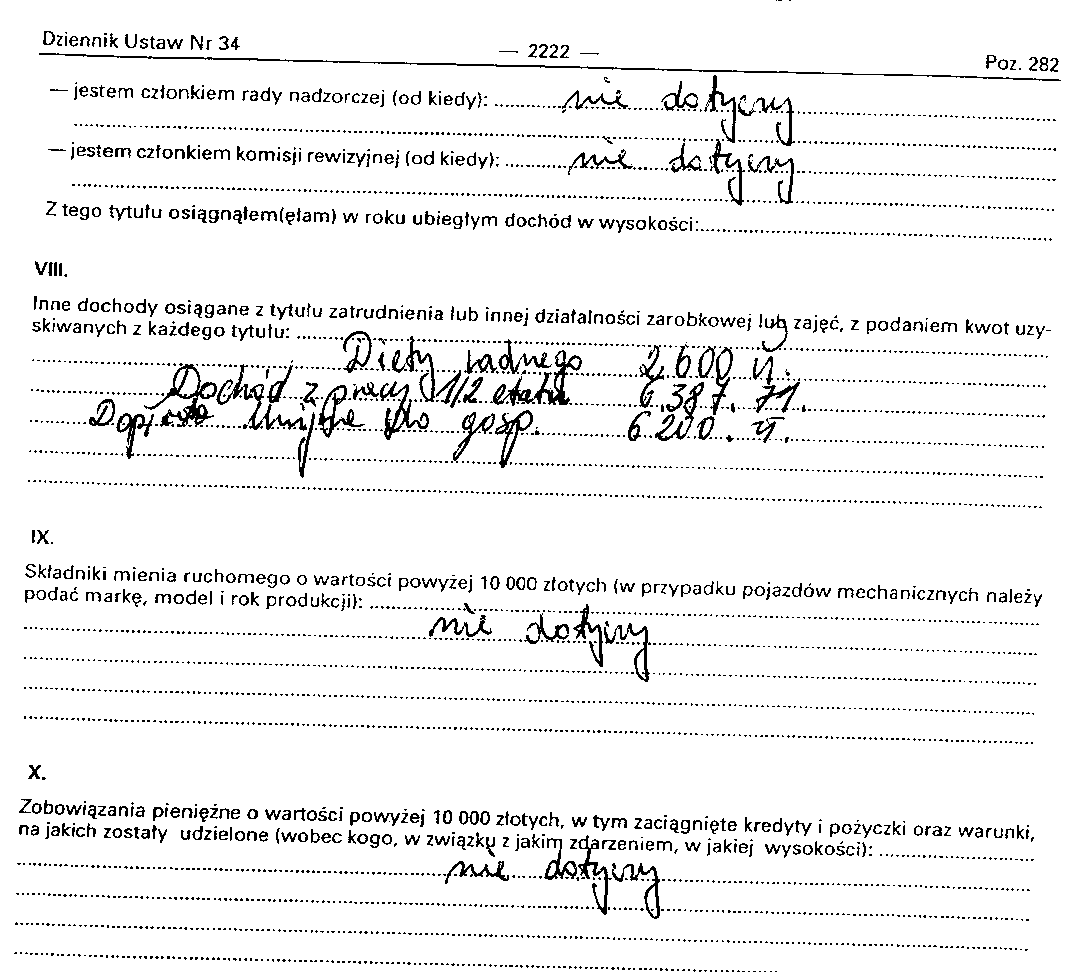 Dziennik Ustaw Nr 34 — 2222 — Poz. 282
— jestem członkiem rady nadzorczej (od kiedy): nie dotyczy
— jestem członkiem komisji rewizyjnej (od kiedy): nie dotyczy
Z tego tytułu osiągnąłem(ęłam) w roku ubiegłym dochód w wysokości:
VIII.
Inne dochody osiągane z tytułu zatrudnienia lub innej działalności zarobkowej lub zajęć, z podaniem kwot uzy-
skiwanych z każdego tytułu:
Diety radnego 2.600 zł.
Dochód z pracy 1/2 etatu 6.387. zł.
Dopłata Unijne do gosp. 6.200. zł.
IX.
Składniki mienia ruchomego o wartości powyżej 10 000 złotych (w przypadku pojazdów mechanicznych należy
podać markę, model i rok produkcji):
nie dotyczy
X.
Zobowiązania pieniężne o wartości powyżej 10 000 złotych, w tym zaciągnięte kredyty i pożyczki oraz warunki,
na jakich zostały udzielone (wobec kogo, w związku z jakim zdarzeniem, w jakiej wysokości):
nie dotyczy